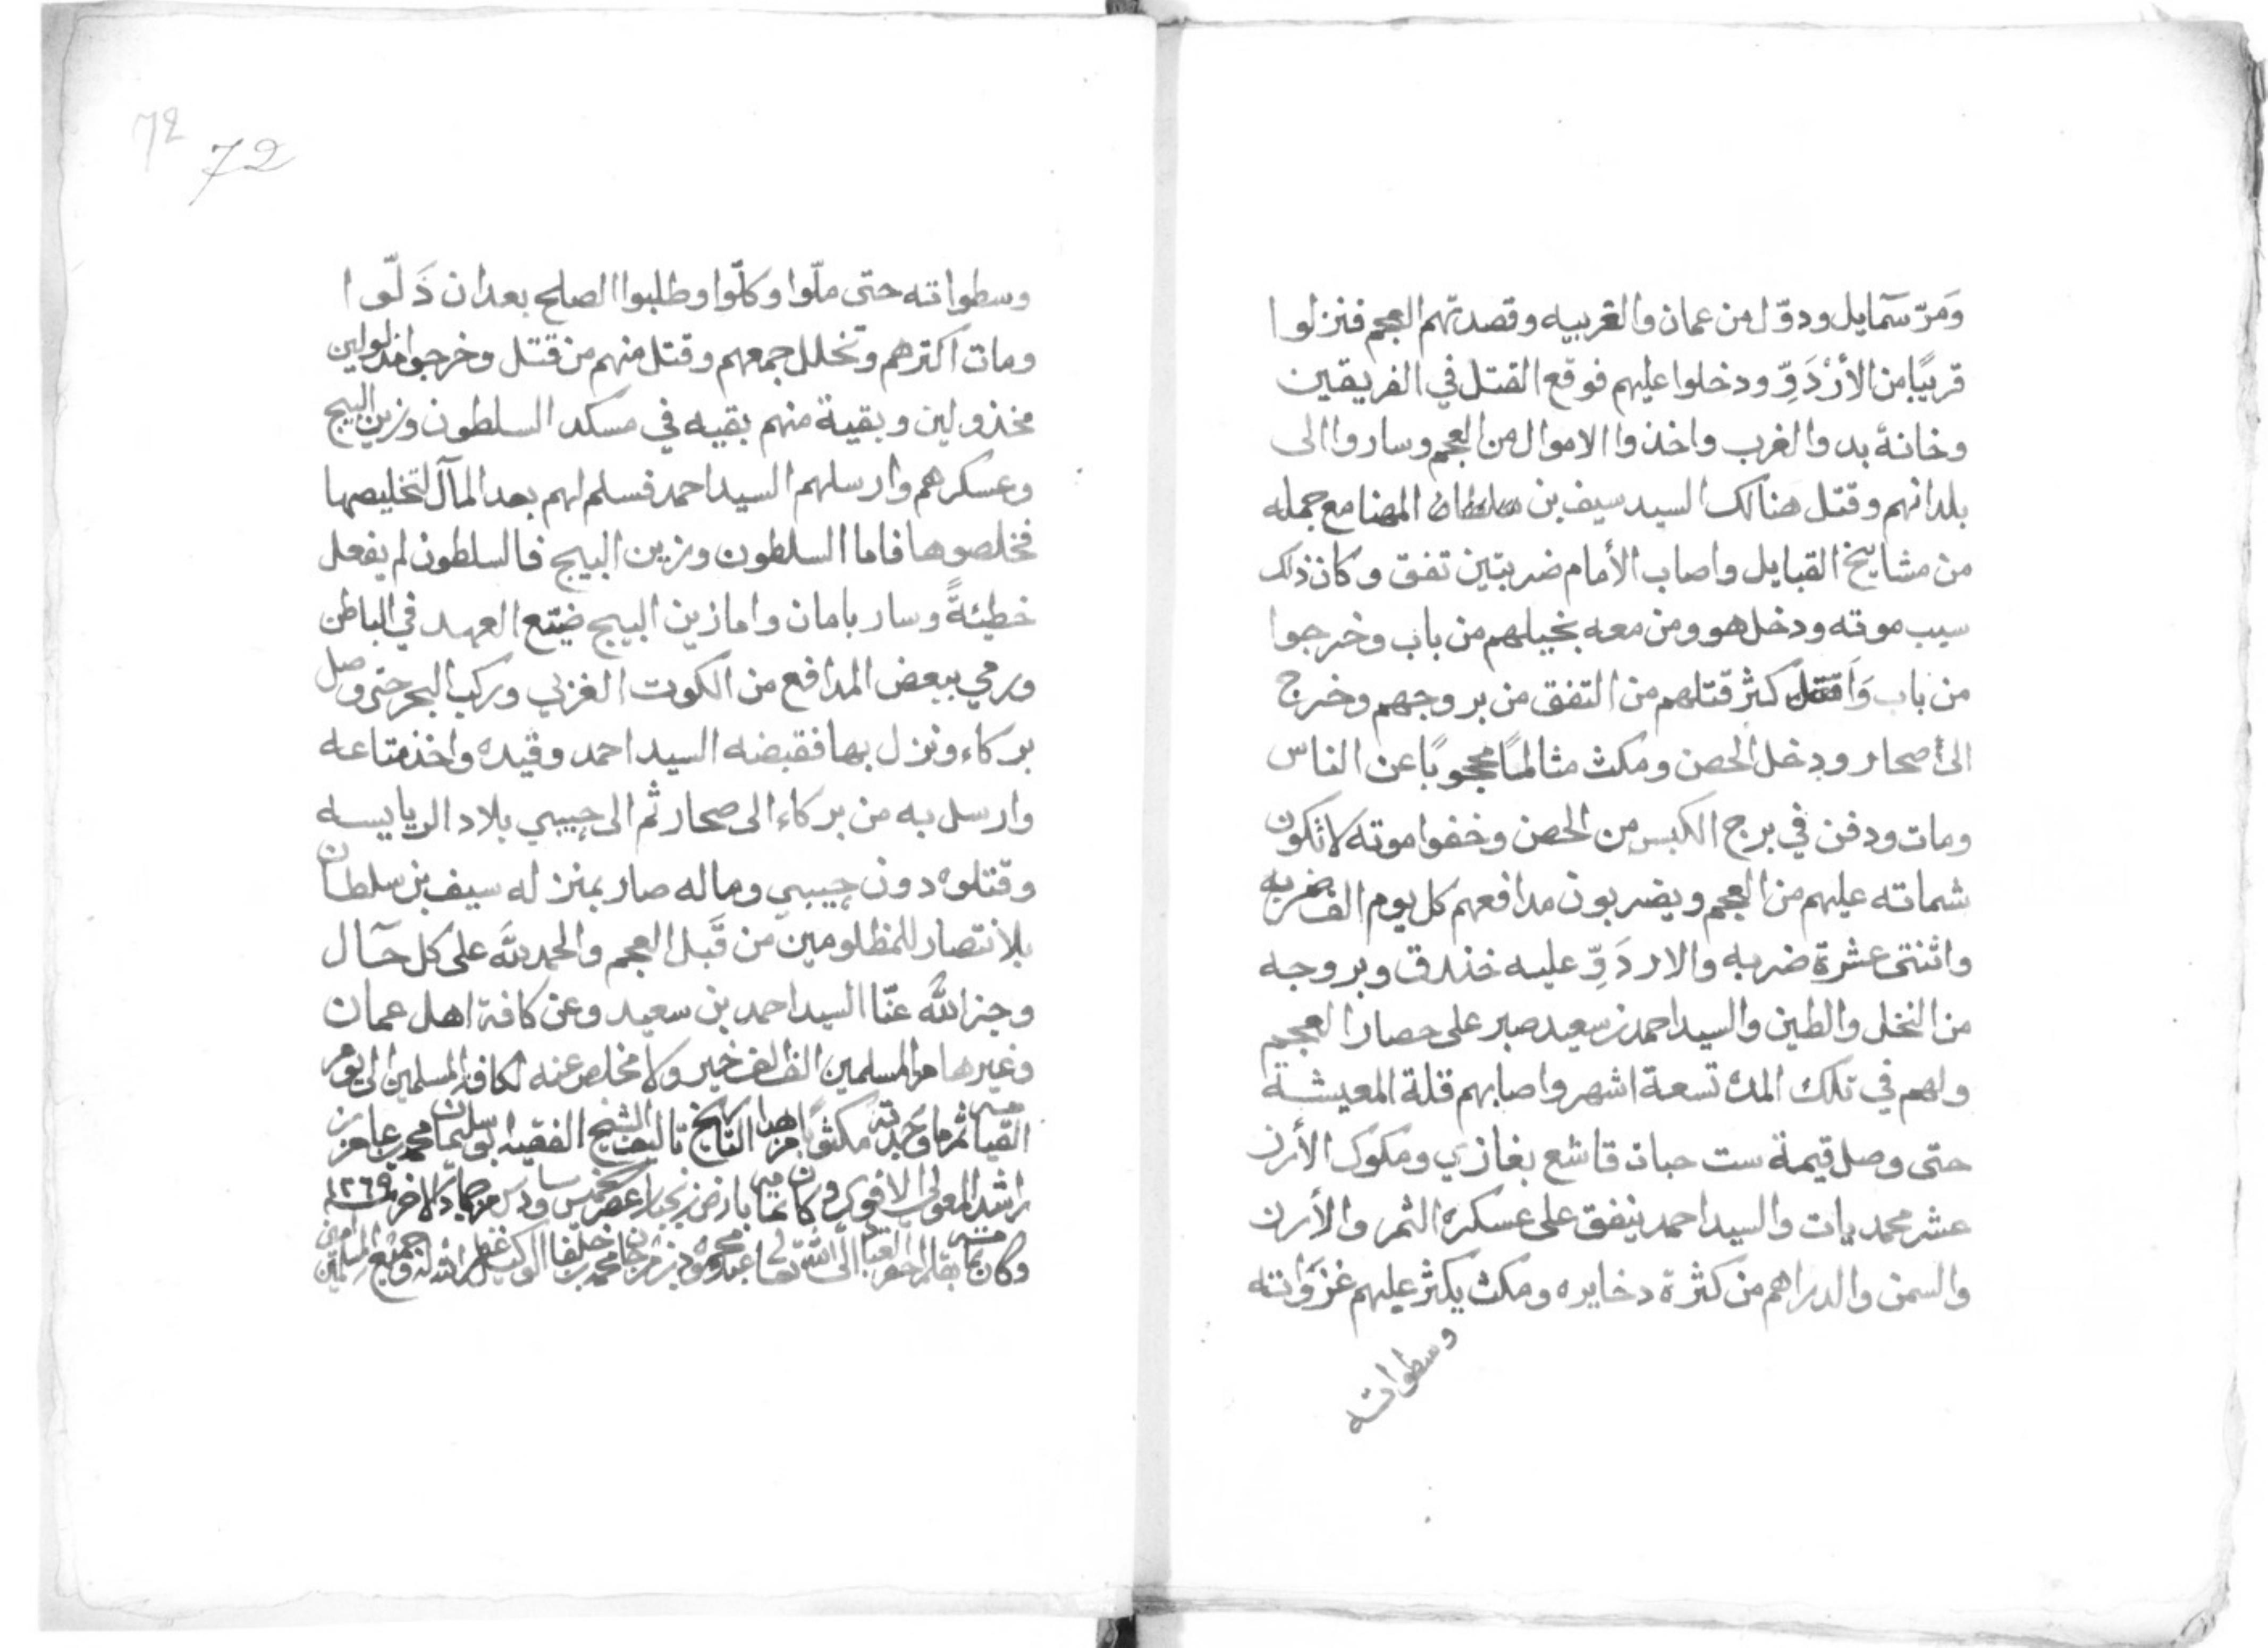 وَمَرّ سَمآيل ودوّل من عمان والغربيه وقصدتهم العجم فنزلوا
قريبًا من الأرْدَوِّ ودخلوا عليهم فوقع القتل في الفريقين
وخانهٔ بدو الغرب واخذوا الاموال من العجم وساروا الى
بلدانهم وقتل هنالك السيد سيف بن المهنا مع جمله
من مشايخ القبايل واصاب الأمام ضربتين تفق وكان ذلك
سبب موته ودخل هو ومن معه بخيلهم من باب وخرجوا
من باب كثر قتلهم من التفق من بروجهم وخرج
الى صحار ودخل الحصن ومكث مثالمًا محجوبًا عن الناس
ومات ودفن في برج الكبس من الحصن وخفوا موته لا تكون
شماته عليهم من العجم ويضربون مدافعهم كل يوم الف ضربه
واثنتى عشرة ضربه والاردَوِّ عليه خندق وبروجه
من النخل والطين والسيد احمد بن سعيد صبر على حصار العجم
ولهم في تلك المده تسعة اشهر واصابهم قلة المعيشة
حتى وصل قيمة ست حبات قاشع بغازي ومكوك الأرز
عشر محمديات والسيد احمد ينفق على عسكره التمر والأرز
والسمن والدراهم من كثرة دخايره ومكث يكثر عليهم غزَوَاته
وسطواته
72
72
وسطواته حتى ملّوا وكلّوا وطلبوا الصلح بعد ان ذَلّوا
ومات اكثرهم وتخلل جمعهم وقتل منهم من قتل وخرجوا
مخذولين وبقية منهم بقيه في مسكد السلطون وزين البيج
وعسكرهم وارسلهم السيد احمد فسلم لهم بعد المآل لتخليصها
فخلصوها فاما السلطون وزين البيج فالسلطون لم يفعل
خطيئةً وسار بامان واما زين البيج ضيّع العهد في الباطن
ورمي ببعض المدافع من الكوت الغربي وركب البحر حتى وصل
بركاء ونزل بها فقبضه السيد احمد وقيده واخذ متاعه
وارسل به من بركاء الى صحار ثم الى حيبي بلاد الريايسه
وقتلوه دون حيبي وماله صار بمنزله سيف بن سلطان
بلانتصار للمظلومين من قَبل العجم والحمد لله على كل حآل
وجز الله عنّا السيد احمد بن سعيد وعن كافة اهل عمان
وغيرها من المسلمين الف الف خير ولا مخلص عنه لكافة المسلمين الى يوم
القيامه تم ما وجدته مكتوبًا من هذا التاريخ تاليف الشيخ الفقيه ابي سليمان محمد بن عامر بن
راشد المعولي الافوي وكان تمامه بارض زنجبار عصر خميس سادس من جمادى الاخر سنة ١٢٦٩
وكان تمامه بقلم احقر العبيد الى الله تعالى محمد بن خلفان الوكيل غفر الله له ولجميع المسلمين امين